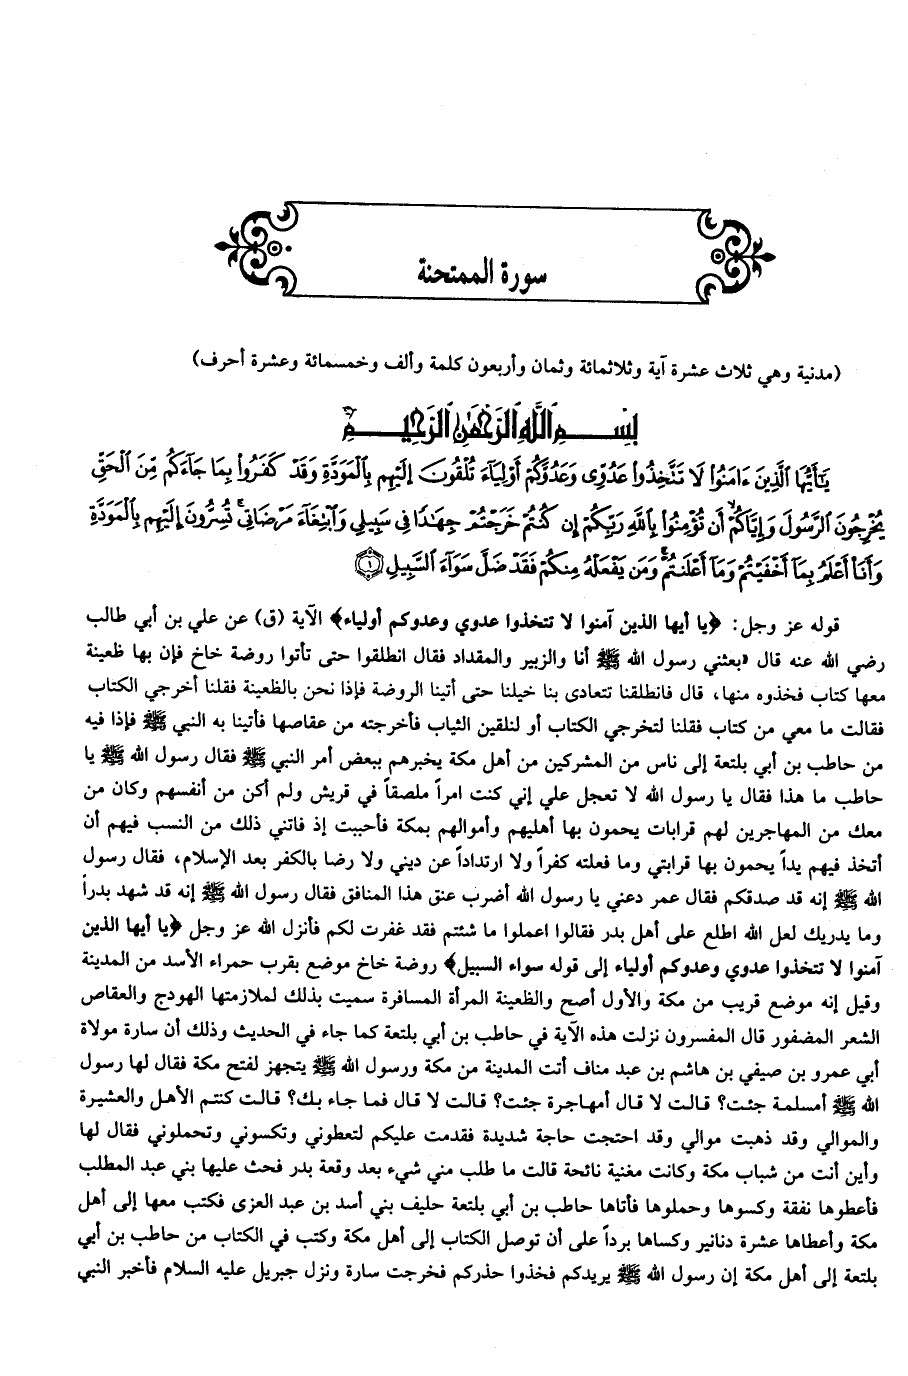 سورة الممتحنة
(مدنية وهي ثلاث عشرة آية وثلاثمائة وثمان وأربعون كلمة وألف وخمسمائة وعشرة أحرف)
بِسْمِ ٱللَّهِ ٱلرَّحْمَٰنِ ٱلرَّحِيمِ
يَٰٓأَيُّهَا ٱلَّذِينَ ءَامَنُوا۟ لَا تَتَّخِذُوا۟ عَدُوِّى وَعَدُوَّكُمْ أَوْلِيَآءَ تُلْقُونَ إِلَيْهِم بِٱلْمَوَدَّةِ وَقَدْ كَفَرُوا۟ بِمَا جَآءَكُم مِّنَ ٱلْحَقِّ
يُخْرِجُونَ ٱلرَّسُولَ وَإِيَّاكُمْ ۙ أَن تُؤْمِنُوا۟ بِٱللَّهِ رَبِّكُمْ إِن كُنتُمْ خَرَجْتُمْ جِهَٰدًا فِى سَبِيلِى وَٱبْتِغَآءَ مَرْضَاتِى ۚ تُسِرُّونَ إِلَيْهِم بِٱلْمَوَدَّةِ
وَأَنَا۠ أَعْلَمُ بِمَآ أَخْفَيْتُمْ وَمَآ أَعْلَنتُمْ ۚ وَمَن يَفْعَلْهُ مِنكُمْ فَقَدْ ضَلَّ سَوَآءَ ٱلسَّبِيلِ ١
قوله عز وجل: ﴿يا أيها الذين آمنوا لا تتخذوا عدوي وعدوكم أولياء﴾ الآية (ق) عن علي بن أبي طالب
رضي الله عنه قال «بعثني رسول الله ﷺ أنا والزبير والمقداد فقال انطلقوا حتى تأتوا روضة خاخ فإن بها ظعينة
معها كتاب فخذوه منها، قال فانطلقنا تتعادى بنا خيلنا حتى أتينا الروضة فإذا نحن بالظعينة فقلنا أخرجي الكتاب
فقالت ما معي من كتاب فقلنا لتخرجي الكتاب أو لنلقين الثياب فأخرجته من عقاصها فأتينا به النبي ﷺ فإذا فيه
من حاطب بن أبي بلتعة إلى ناس من المشركين من أهل مكة يخبرهم ببعض أمر النبي ﷺ فقال رسول الله ﷺ يا
حاطب ما هذا فقال يا رسول الله لا تعجل علي إني كنت امرأ ملصقاً في قريش ولم أكن من أنفسهم وكان من
معك من المهاجرين لهم قرابات يحمون بها أهليهم وأموالهم بمكة فأحببت إذ فاتني ذلك من النسب فيهم أن
أتخذ فيهم يداً يحمون بها قرابتي وما فعلته كفراً ولا ارتداداً عن ديني ولا رضا بالكفر بعد الإسلام، فقال رسول
الله ﷺ إنه قد صدقكم فقال عمر دعني يا رسول الله أضرب عنق هذا المنافق فقال رسول الله ﷺ إنه قد شهد بدراً
وما يدريك لعل الله اطلع على أهل بدر فقالوا اعملوا ما شئتم فقد غفرت لكم فأنزل الله عز وجل ﴿يا أيها الذين
آمنوا لا تتخذوا عدوي وعدوكم أولياء إلى قوله سواء السبيل﴾ روضة خاخ موضع بقرب حمراء الأسد من المدينة
وقيل إنه موضع قريب من مكة والأول أصح والظعينة المرأة المسافرة سميت بذلك لملازمتها الهودج والعقاص
الشعر المضفور قال المفسرون نزلت هذه الآية في حاطب بن أبي بلتعة كما جاء في الحديث وذلك أن سارة مولاة
أبي عمرو بن صيفي بن هاشم بن عبد مناف أتت المدينة من مكة ورسول الله ﷺ يتجهز لفتح مكة فقال لها رسول
الله ﷺ أمسلمة جئت؟ قالت لا قال أمهاجرة جئت؟ قالت لا قال فما جاء بك؟ قالت كنتم الأهل والعشيرة
والموالي وقد ذهبت موالي وقد احتجت حاجة شديدة فقدمت عليكم لتعطوني وتكسوني وتحملوني فقال لها
وأين أنت من شباب مكة وكانت مغنية نائحة قالت ما طلب مني شيء بعد وقعة بدر فحث عليها بني عبد المطلب
فأعطوها نفقة وكسوها وحملوها فأتاها حاطب بن أبي بلتعة حليف بني أسد بن عبد العزى فكتب معها إلى أهل
مكة وأعطاها عشرة دنانير وكساها برداً على أن توصل الكتاب إلى أهل مكة وكتب في الكتاب من حاطب بن أبي
بلتعة إلى أهل مكة إن رسول الله ﷺ يريدكم فخذوا حذركم فخرجت سارة ونزل جبريل عليه السلام فأخبر النبي